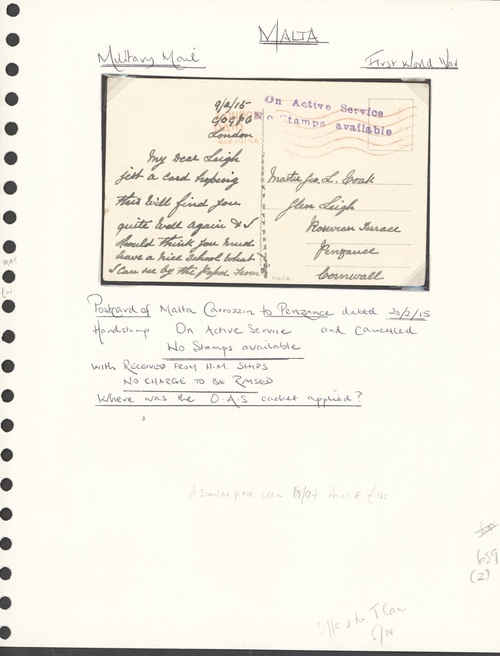 MALTA
Military Mail
First World War
9/2/15
C/o G.P.O
London
My Dear Leigh
just a card hoping
this will find you
quite well again & I
should think you must
have a nice school what
I can see by the paper from
On Active Service
No Stamps available
Master Jas. L. Coak
Glen Leigh
Rosevean Terrace
Penzance
Cornwall
Postcard of Malta Carrozzin to Penzance dated 20/2/15
Handstamp On Active Service and cancelled
No Stamps available
with RECEIVED FROM H.M. SHIPS
NO CHARGE TO BE RAISED
Where was the O.A.S cachet applied?
A similar piece seen
659
(2)
5/14